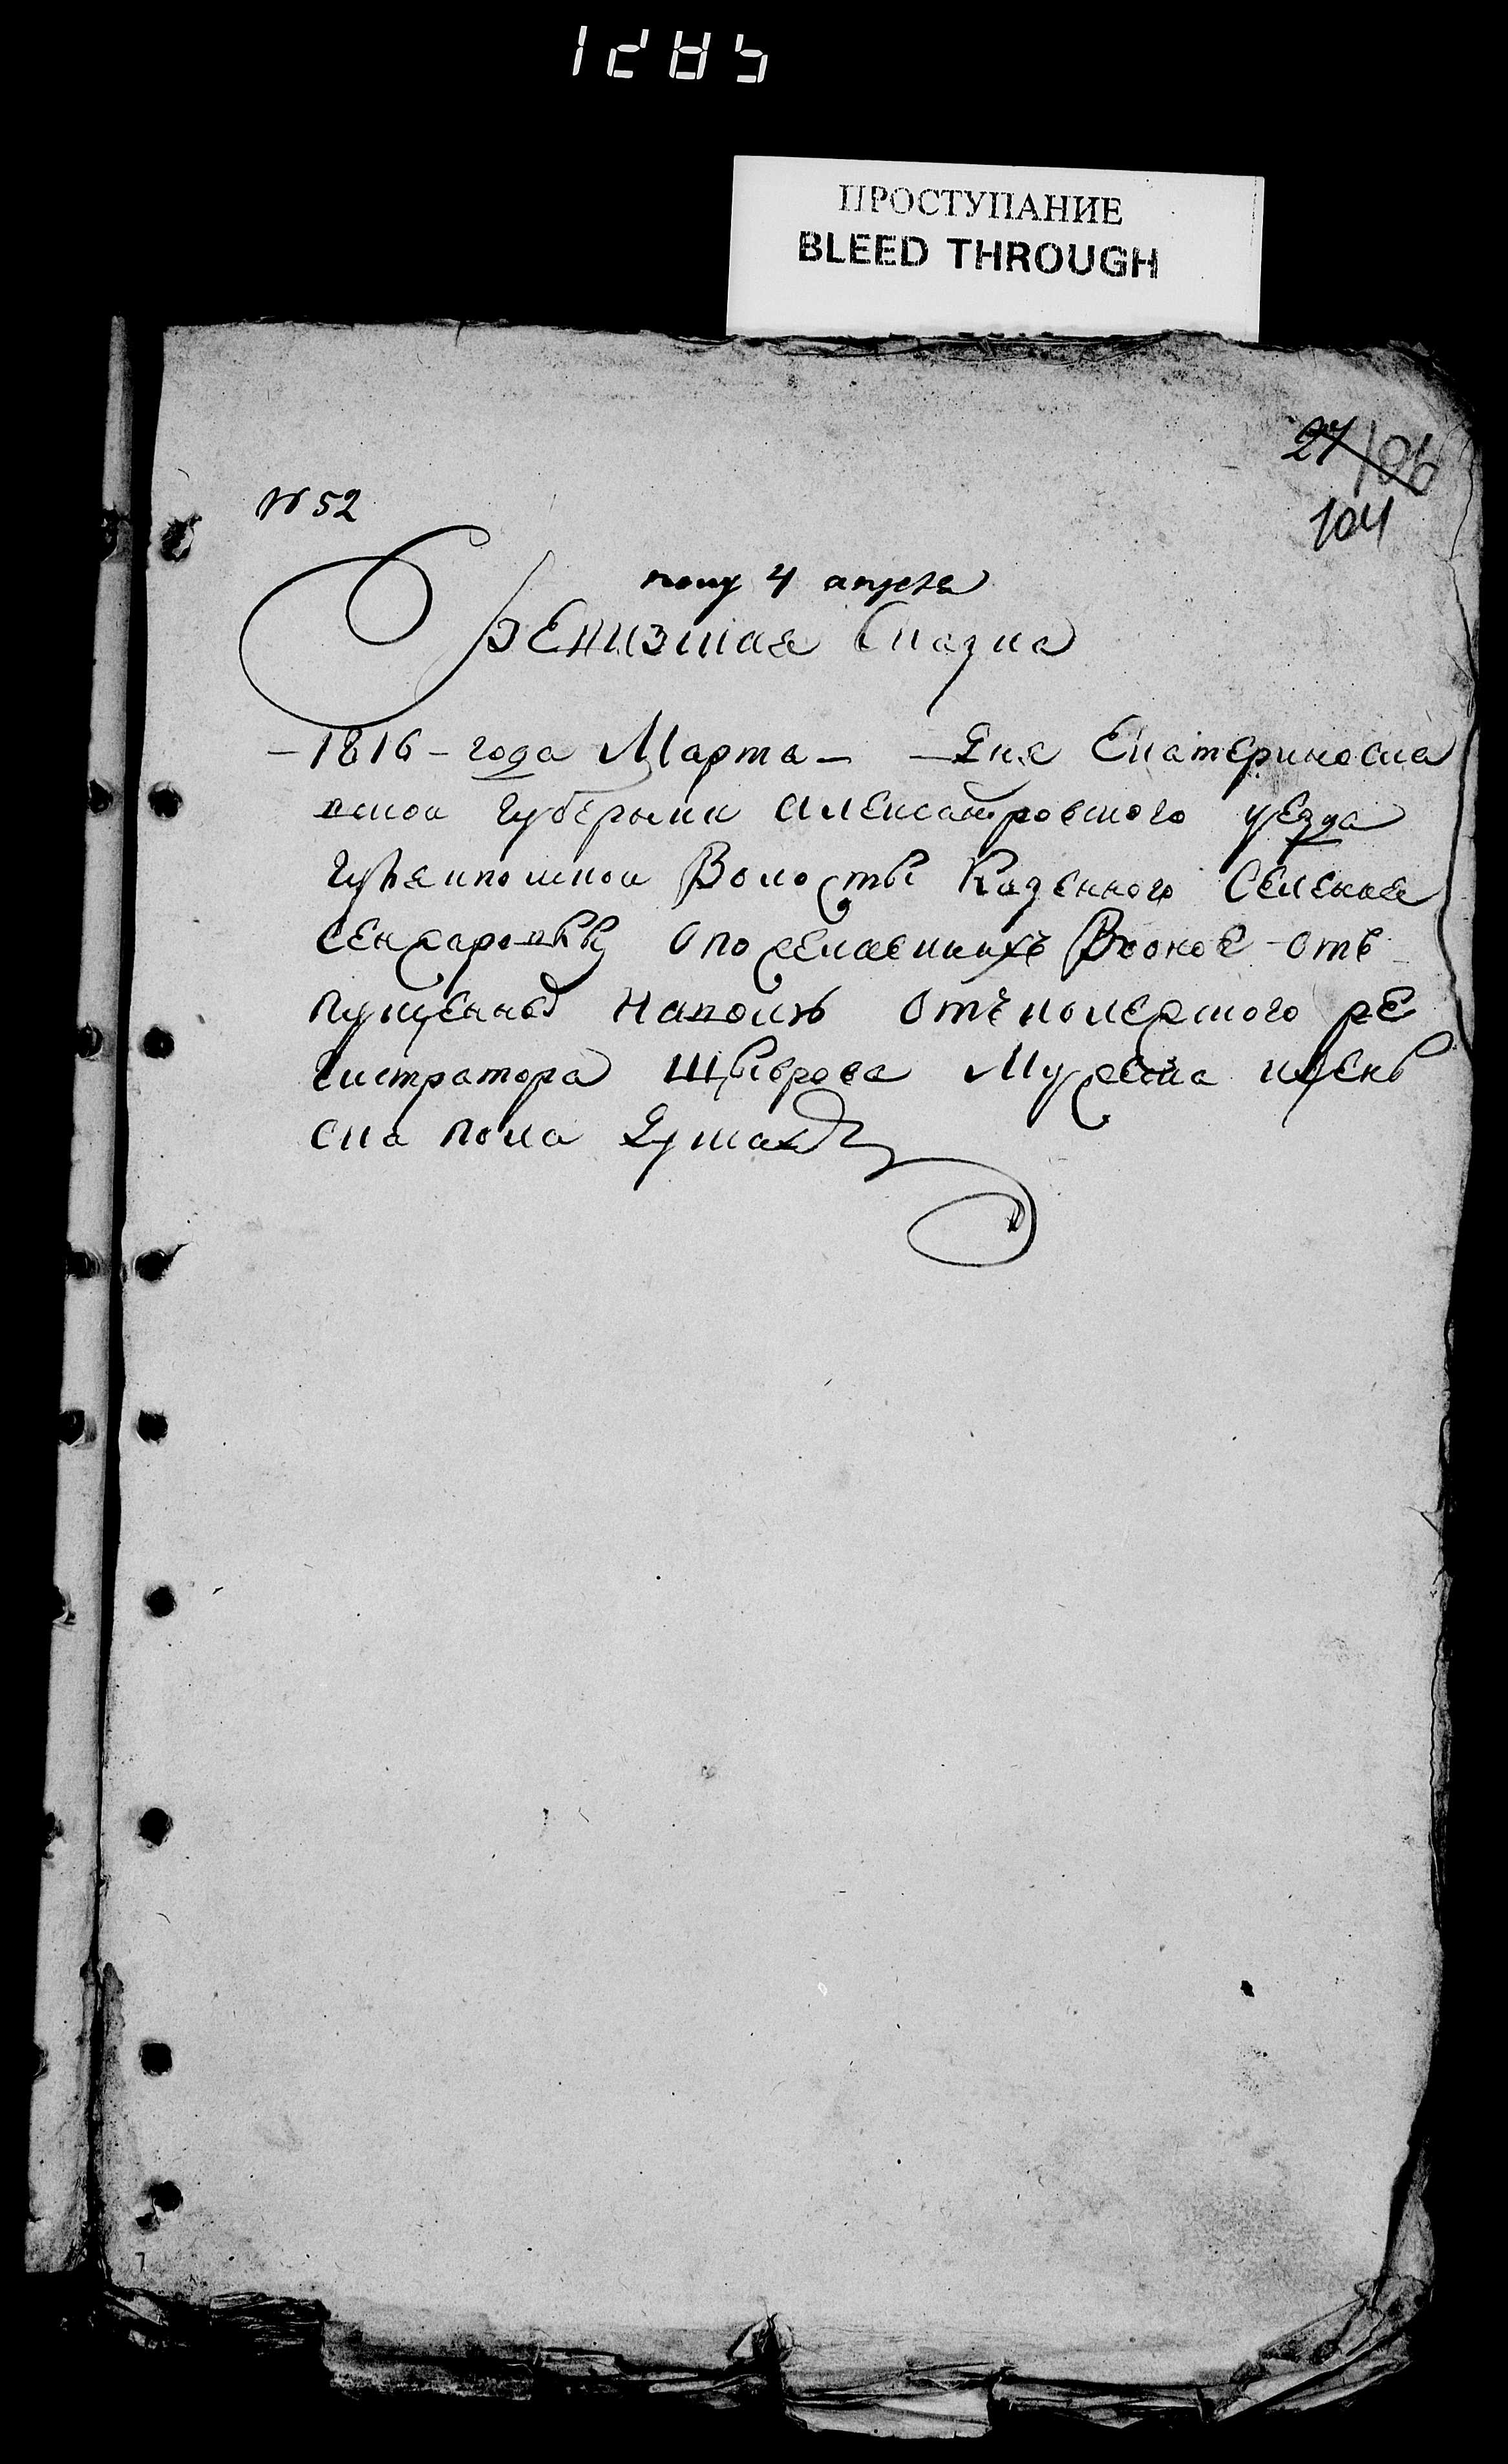 1285
ПРОСТУПАНИЕ
BLEED THROUGH
27/106
104
№ 52
полу 4 апреля
Ревизская Сказка
— 1816 — года Марта — — Дня Екатериносла
вской Губернии Александровского уезда
Гуляйпольской Волосты Казенного Селения
Сенжаровки О поселившихся Вооное от
пущенное на волю отъ колежского ре
гистратора Шкляврова Мужеска и жень
ска пола Душах